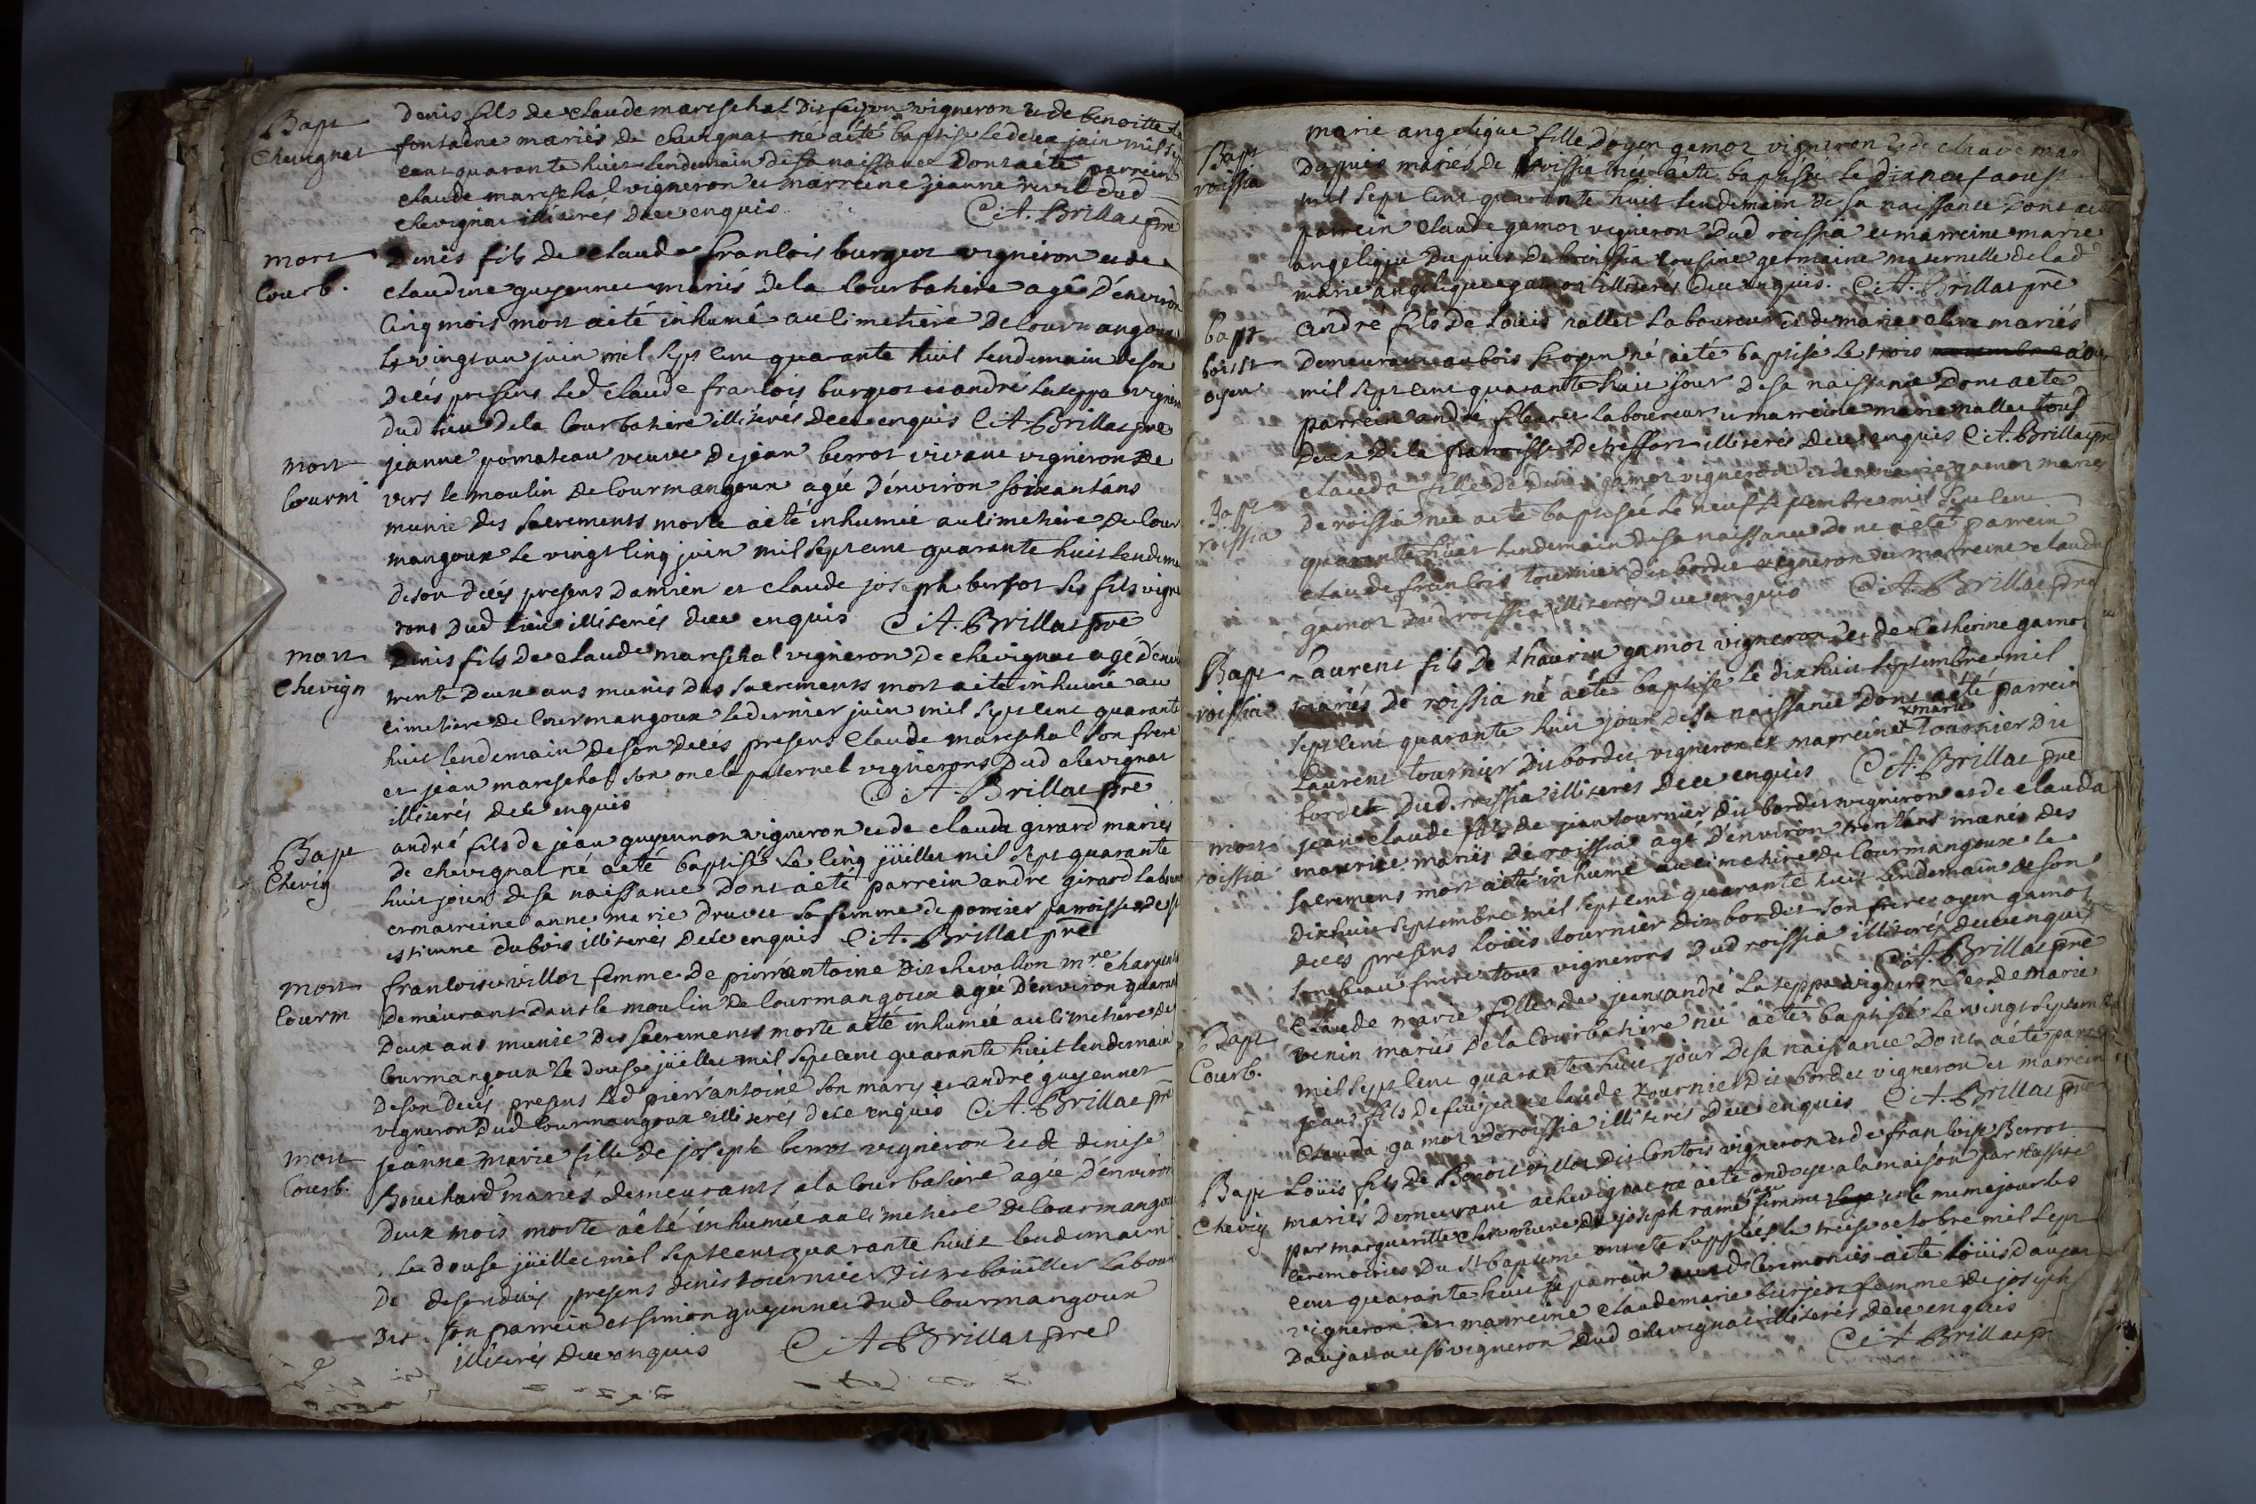 Bapt
Chevignat
Denis fils de claude mareschal vigneron et de benoitte
fontaine mariés de chevignat né a eté baptisé le deux juin mil sept
cent quarante huit lendemain de sa naissance dont a eté parrein
claude mareschal vigneron et marreine jeanne dud
chevignat illiterés de ce enquis C: A. Brillat pre
mort
Courb.
Denis fils de claude francois burgeot vigneron et de
claudine guyennet mariés de la Courbatiere agé d'environ
cinq mois mort a eté inhumé au cimetiere de Courmangoux
le vingt un juin mil sept cent quarante huit lendemain de son
décés presens led claude francois burgeot et andré lateppa vigner
dud lieu de la Courbatiere illiterés de ce enquis C: A. Brillat pre
mort
Courm
jeanne pomateau veuve de jean berrot vivant vigneron de
vers le moulin de Courmangoux agée d'environ soixant'ans
munie des sacrements morte a eté inhumée au cimetiere de Cour
mangoux le vingt cinq juin mil sept cent quarante huit lendemain
de son décés presens Damien et claude joseph berrot ses fils vigne
rons dud lieu illiterés de ce enquis C: A. Brillat pre
mort
Chevign
Denis fils de claude mareschal vigneron de chevignat agé d'envi
trente deux ans munis des sacrements mort a eté inhumé au
cimetiere de Courmangoux le dernier juin mil sept cent quarante
huit lendemain de son décés presens claude mareschal son frere
et jean mareschal son oncle paternel vignerons dud chevignat
illiterés de ce enquis C: A. Brillat pre
Bapt
Chevig
andré fils de jean guyennon vigneron et de clauda girard mariés
de chevignat né a eté baptisé le cinq jüillet mil sept quarante
huit jour de sa naissance dont a eté parrein andré girard labour
et marreine anne marie druet sa femme de poncier parroisse de st
estienne dubois illiterés de ce enquis C: A. Brillat pre
mort
Courm
francoise villot femme de pierr'antoine dit chevallon mre charpenti
demeurant dans le moulin de Courmangoux agée d'environ quarant
deux ans munie des sacrements morte a eté inhumée au cimetiere de
Courmangoux le douse jüillet mil sept cent quarante huit lendemain
de son décés presens led pierr'antoine son mary et andré guyennet
vigneron dud Courmangoux illiterés de ce enquis C: A. Brillat pre
mort
Courb.
jeanne marie fille de joseph berrot vigneron et de denise
Bouchard mariés demeurants a la Courbatiere agée d'environ
deux mois morte a eté inhumée au cimetiere de Courmangoux
le douse jüillet mil sept cent quarante huit lendemain
de son décés presens denis tournier dit rebouillet labour
son parrein et simon guyennet dud Courmangoux
illiterés de ce enquis C: A. Brillat pre
Bapt
roissia
marie angelique fille d'oyen gamot vigneron et de claude mar
Dupuis mariés de roissia née a eté baptisée le dixneuf aoust
mil sept cent quarante huit lendemain de sa naissance dont a eté
parrein claude gamot vigneron dud roissia et marreine marie
angelique Dupuis de broissia cousine germaine maternelle de lad
marie angelique gamot illiterés de ce enquis. C: A. Brillat pre
bapt
bois st
oyen
andré fils de Loüis rallet laboureur et de marie clerc mariés
demeurants au bois st oyen né a eté baptisé le trois
mil sept cent quarante huit jour de sa naissance dont a eté
parrein andré laboureur et marreine marie mallet tous
deux de la parroisse de treffort illiterés de ce enquis C: A. Brillat pre
Bapt
roissia
clauda fille de denis gamot vigneron et de marie gamot mariés
de roissia née a eté baptisée le neuf septembre mil sept cent
quarante huit lendemain de sa naissance dont a eté parrein
claude francois tournier dit bordet vigneron et marreine clauda
gamot dud roissia illiterés de ce enquis C: A. Brillat pre
Bapt
roissia
Laurent fils de thaurin gamot vigneron et de Catherine gamot
mariés de roissia né a eté baptisé le dixhuit septembre mil
sept cent quarante huit jour de sa naissance dont a eté parrein
Laurent tournier dit bordet vigneron et marreine x marie tournier dit
bordet dud roissia illiterés de ce enquis C: A. Brillat pre
mort
roissia
jean claude fils de jean tournier dit bordet vigneron et de clauda
maurice mariés de roissia agé d'environ trent'ans munés des
sacremens mort a eté inhumé au cimetiere de Courmangoux le
dixhuit septembre mil sept cent quarante huit lendemain de son
décés presens Loüis tournier dit bordet son frere oyen gamot
son beau frere tous vignerons dud roissia illiterés de ce enquis
C: A. Brillat pre
Bapt
Courb.
Claude marie fille de jean andré Lateppa vigneron et de marie
venin mariés de la Courbatiere née a eté baptisée le vingt septembre
mil sept cent quarante huit jour de sa naissance dont a eté parrein
jean fils de feu jean claude tournier dit bordet vigneron et marrein
clauda gamot de roissia illiterés de ce enquis C: A. Brillat pre
Bapt
Chevig
Loüis fils de Benoit villot dit Contois vigneron et de francoise Berrot
mariés demeurant a chevignat né a eté ondoyé a la maison par necessité
par margueritte veuve de joseph rame sage femme et le meme jour les
ceremonies du st bapteme ont eté suppléés le treise octobre mil sept
cent quarante huit parrein ceremonies a eté Loüis daujat
vigneron et marreine claude marie burjeot femme de joseph
daujat aussi vigneron dud chevignat illiterés de ce enquis
C: A. Brillat pr